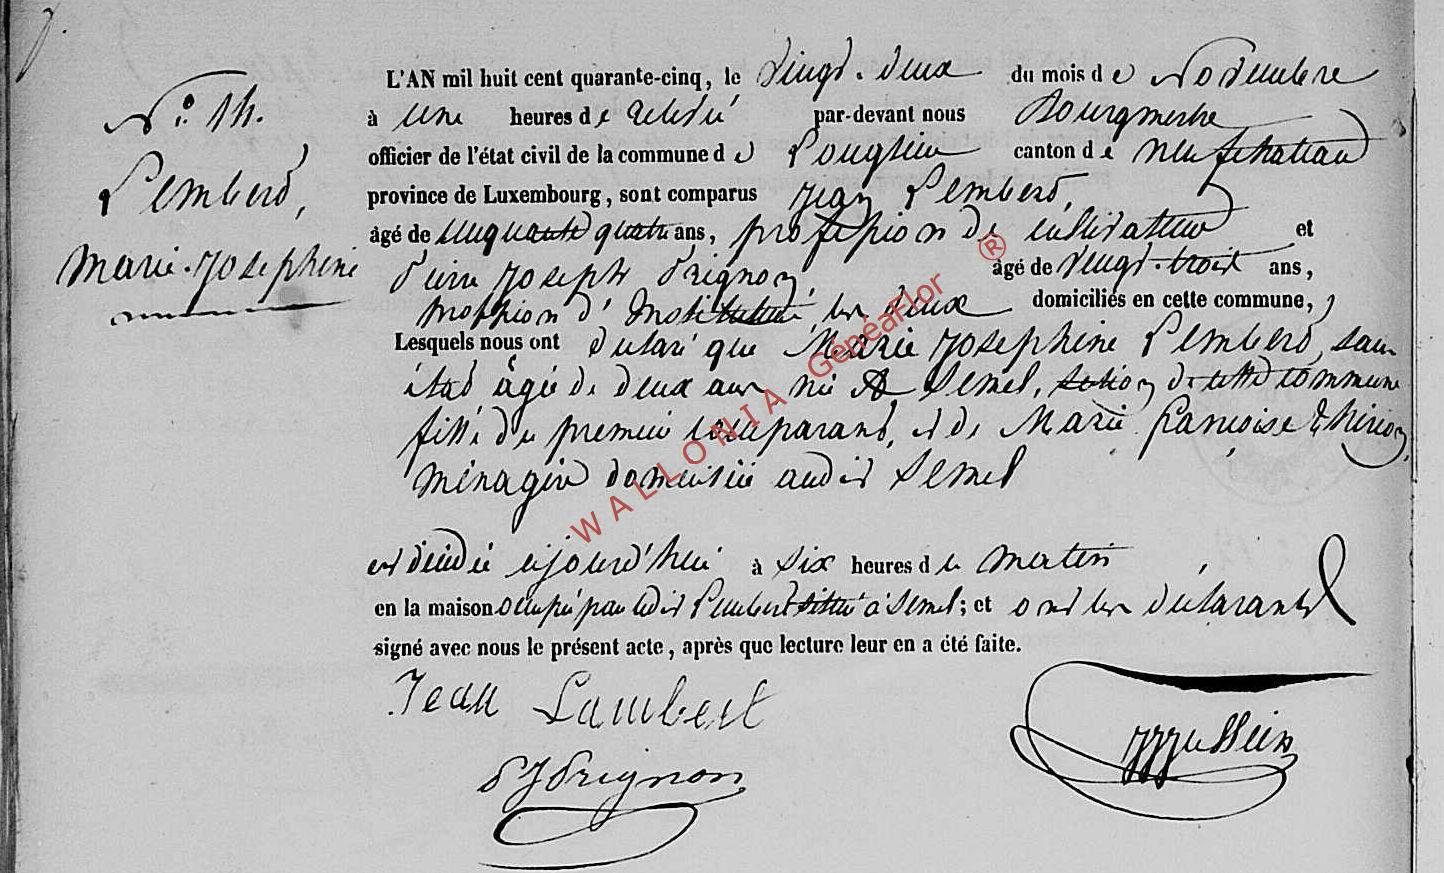 N.° 14.
Lambert,
Marie-Josephine
L'AN mil huit cent quarante-cinq, le vingt-deux du mois de Novembre
à une heures de relevé par-devant nous Bourgmestre
officier de l'état civil de la commune de Longlier canton de neufchateau
province de Luxembourg, sont comparus Jean Lambert,
âgé de cinquante quatre ans, profession de cultivateur et
Pierre Joseph Prignon, âgé de vingt-trois ans,
profession d'Instituteur les deux domiciliés en cette commune,
Lesquels nous ont declaré que Marie Josephine Lambert, sans
état âgée de deux ans née à Semel, section de cette commune
fille du premier comparant, et de Marie françoise Thiry,
ménagère domiciliée audit Semel
est décédée aujourd'hui à six heures du matin
en la maison occupée par ledit Lambert située à Semel; et ont les déclarants
signé avec nous le présent acte, après que lecture leur en a été faite.
Jean Lambert
P J Prignon
WALLONIA GénéaFlor ®